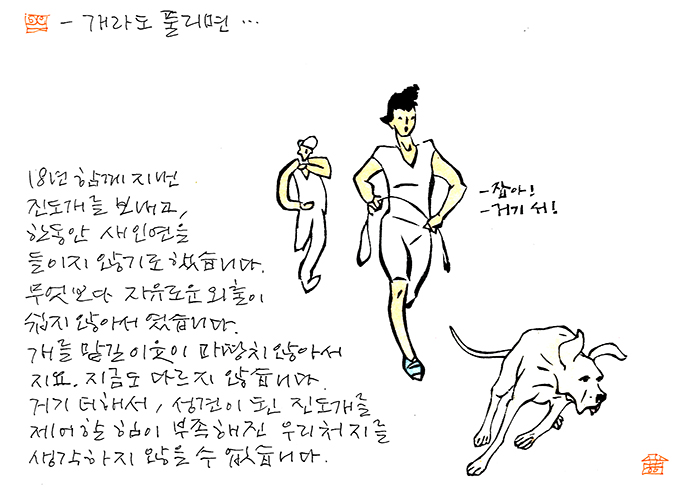 - 개라도 풀리면 ...
18년 함께 지낸
진도개를 보내고,
한동안 새 인연을
들이지 않기로 했습니다.
무엇보다 자유로운 외출이
쉽지 않아서 였습니다.
개를 맡길 이웃이 마땅치 않아서
지요. 지금도 다르지 않습니다.
거기 더해서, 성견이 된 진도개를
제어할 힘이 부족해진 우리 처지를
생각하지 않을 수 없습니다.
- 잡아!
- 거기 서!